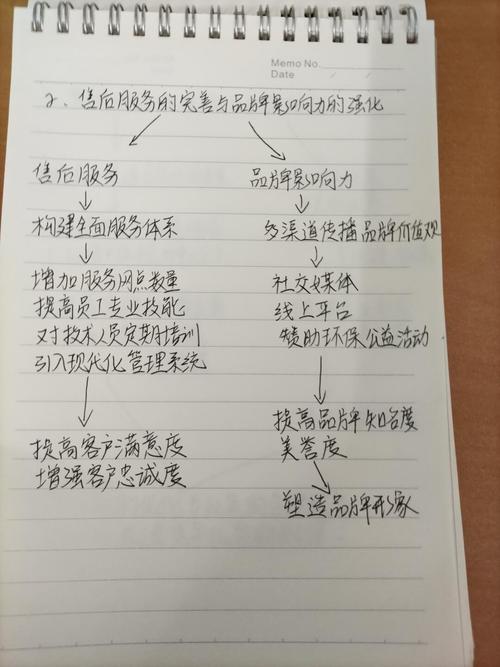 Memo No.
Date / /
2、售后服务的完善与品牌影响力的强化
售后服务
构建全面服务体系
增加服务网点数量
提高员工专业技能
对技术人员定期培训
引入现代化管理系统
提高客户满意度
增强客户忠诚度
品牌影响力
多渠道传播品牌价值观
社交媒体
线上平台
赞助环保公益活动
提高品牌知名度
美誉度
塑造品牌形象